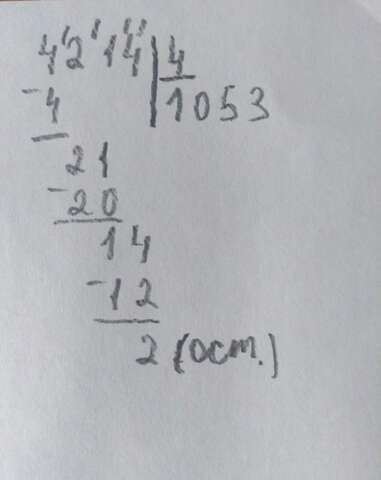 4214 | 4
- 4 | 1053
21
- 20
14
- 12
2 (ост.)